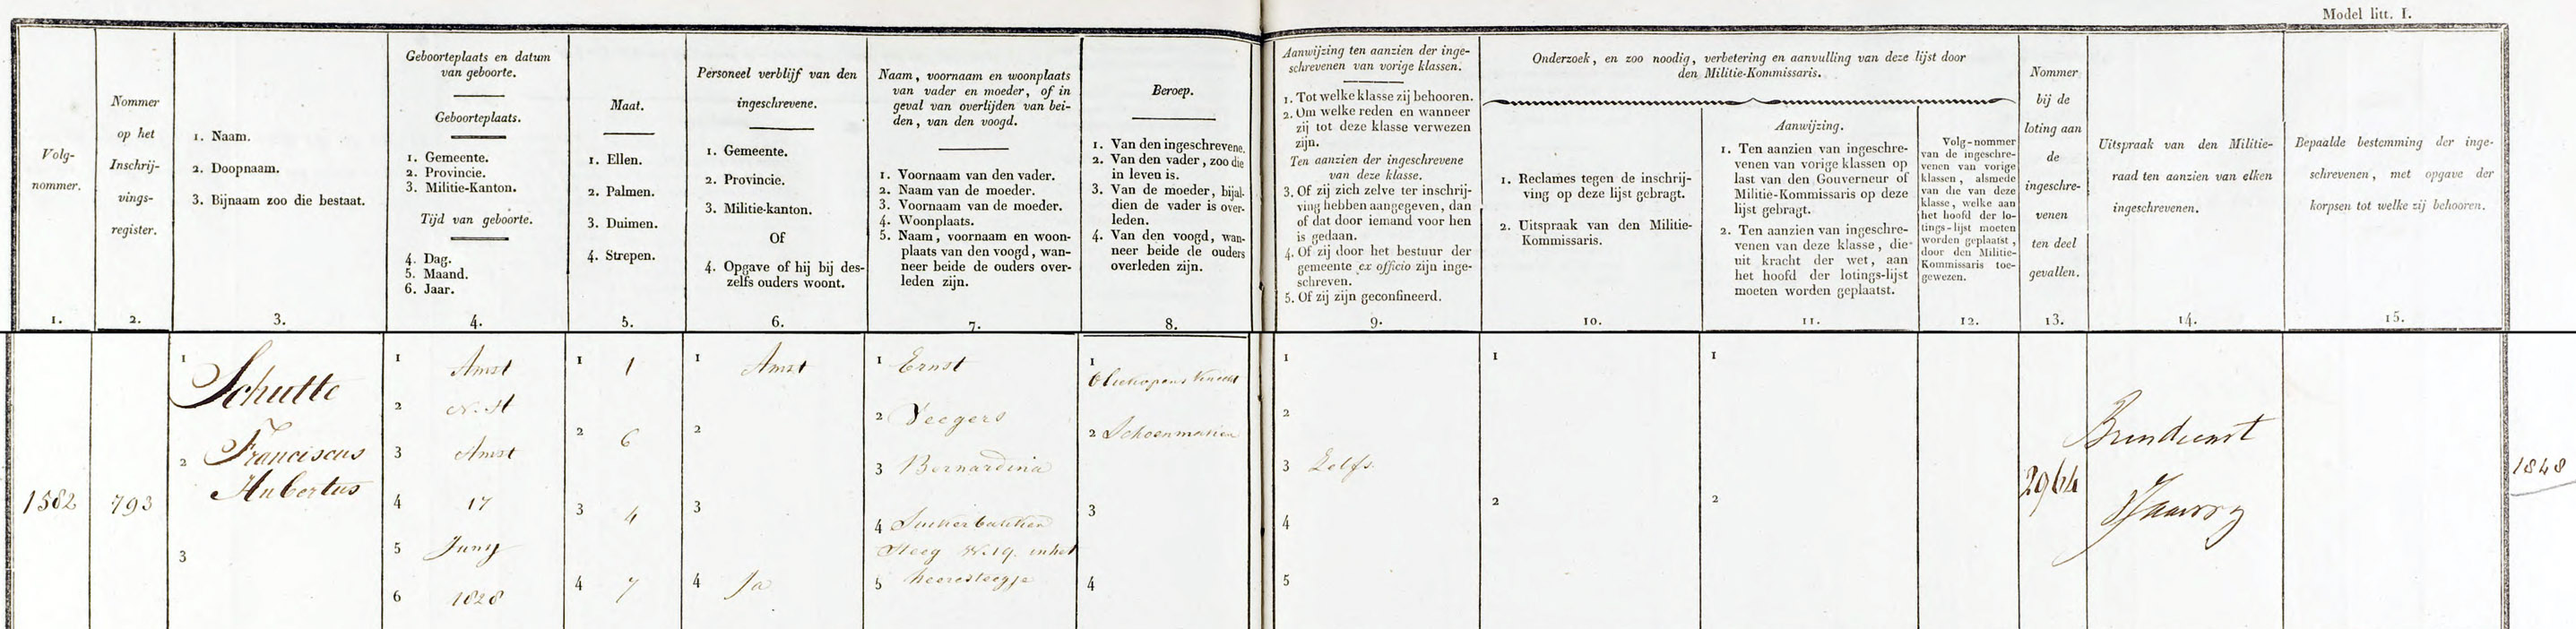 Model litt. I.
Volg-
nommer.
1.
Nommer
op het
Inschrij-
vings-
register.
2.
1. Naam.
2. Doopnaam.
3. Bijnaam zoo die bestaat.
3.
Geboorteplaats en datum
van geboorte.
Geboorteplaats.
1. Gemeente.
2. Provincie.
3. Militie-Kanton.
Tijd van geboorte.
4. Dag.
5. Maand.
6. Jaar.
4.
Maat.
1. Ellen.
2. Palmen.
3. Duimen.
4. Strepen.
5.
Personeel verblijf van den
ingeschrevene.
1. Gemeente.
2. Provincie.
3. Militie-kanton.
Of
4. Opgave of hij bij des-
zelfs ouders woont.
6.
Naam, voornaam en woonplaats
van vader en moeder, of in
geval van overlijden van bei-
den, van den voogd.
1. Voornaam van den vader.
2. Naam van de moeder.
3. Voornaam van de moeder.
4. Woonplaats.
5. Naam, voornaam en woon-
plaats van den voogd, wan-
neer beide de ouders over-
leden zijn.
7.
Beroep.
1. Van den ingeschrevene.
2. Van den vader, zoo die
in leven is.
3. Van de moeder, bijal-
dien de vader is over-
leden.
4. Van den voogd, wan-
neer beide de ouders
overleden zijn.
8.
Aanwijzing ten aanzien der inge-
schrevenen van vorige klassen.
1. Tot welke klasse zij behooren.
2. Om welke reden en wanneer
zij tot deze klasse verwezen
zijn.
Ten aanzien der ingeschrevene
van deze klasse.
3. Of zij zich zelve ter inschrij-
ving hebben aangegeven, dan
of dat door iemand voor hen
is gedaan.
4. Of zij door het bestuur der
gemeente ex officio zijn inge-
schreven.
5. Of zij zijn geconfineerd.
9.
Onderzoek, en zoo noodig, verbetering en aanvulling van deze lijst door
den Militie-Kommissaris.
1. Reclames tegen de inschrij-
ving op deze lijst gebragt.
2. Uitspraak van den Militie-
Kommissaris.
10.
Aanwijzing.
1. Ten aanzien van ingeschre-
venen van vorige klassen op
last van den Gouverneur of
Militie-Kommissaris op deze
lijst gebragt.
2. Ten aanzien van ingeschre-
venen van deze klasse, die
uit kracht der wet, aan
het hoofd der lotings-lijst
moeten worden geplaatst.
11.
Volg-nommer
van de ingeschre-
venen van vorige
klassen, alsmede
van die van deze
klasse, welke aan
het hoofd der lo-
tings-lijst moeten
worden geplaatst,
door den Militie-
Kommissaris toe-
gewezen.
12.
Nommer
bij de
loting aan
de
ingeschre-
venen
ten deel
gevallen.
13.
Uitspraak van den Militie-
raad ten aanzien van elken
ingeschrevenen.
14.
Bepaalde bestemming der inge-
schrevenen, met opgave der
korpsen tot welke zij behooren.
15.
1582
793
1 Schutte
2 Franciscus
Hubertus
3
1 Amst
2 N. H
3 Amst
4 17
5 Juny
6 1828
1 1
2 6
3 4
4 7
1 Amst
2
3
4 Ja
1 Ernst
2 Veegers
3 Bernardina
4 Suikerbakker
Steeg N. 19. in het
5 heeresteegje
1
2 Schoenmaker
3
4
1
2
3 Zelfs.
4
5
1
2
1
2
2964
1 Jaar
1848